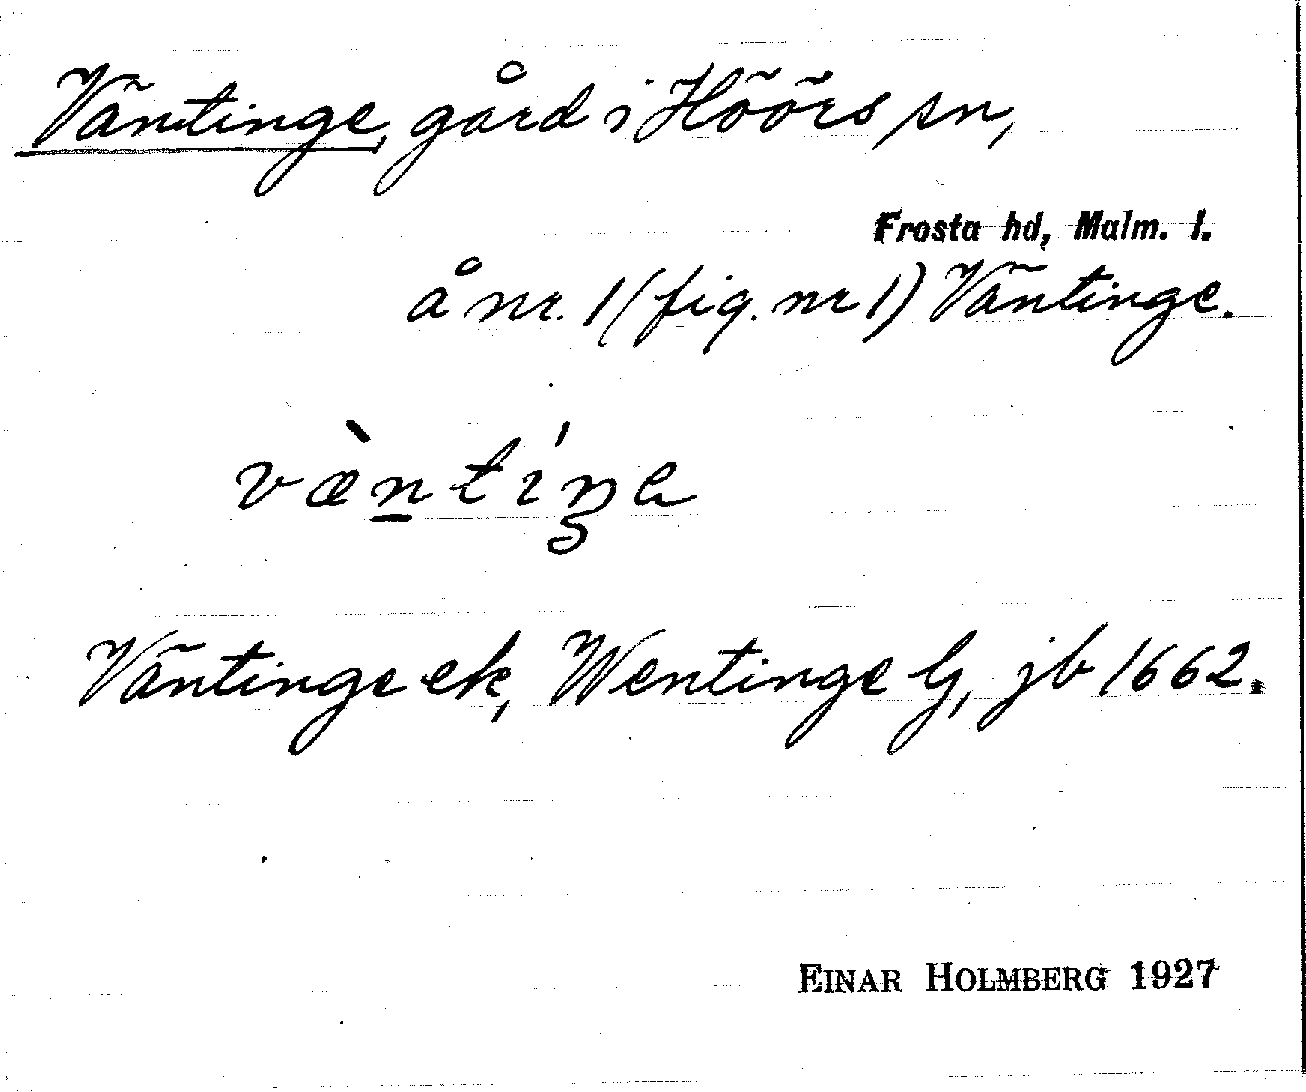 Väntinge, gård i Höörs sn,
Frosta hd, Malm. l.
å nr. 1 (fig. nr 1) Väntinge.
væ̀ntíŋe
Väntinge ek, Wentinge G, jb 1662.
EINAR HOLMBERG 1927